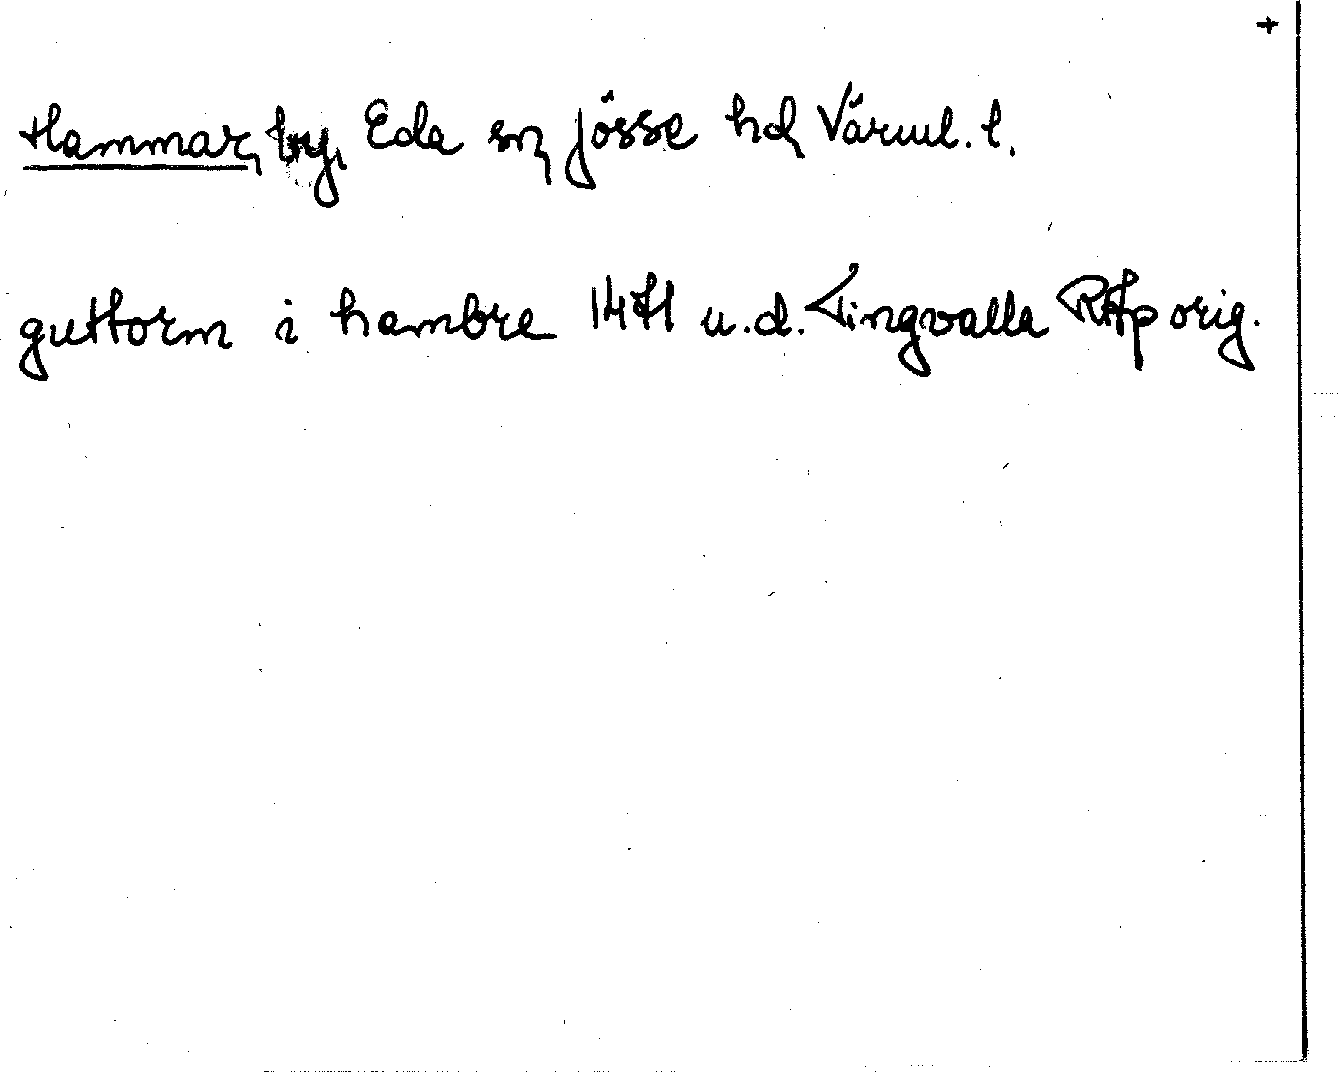 +
Hammar, by, Eda sn, Jösse hd, Värml. l.
guttorm i hambre 1471 u.d. Tingvalla RAp orig.